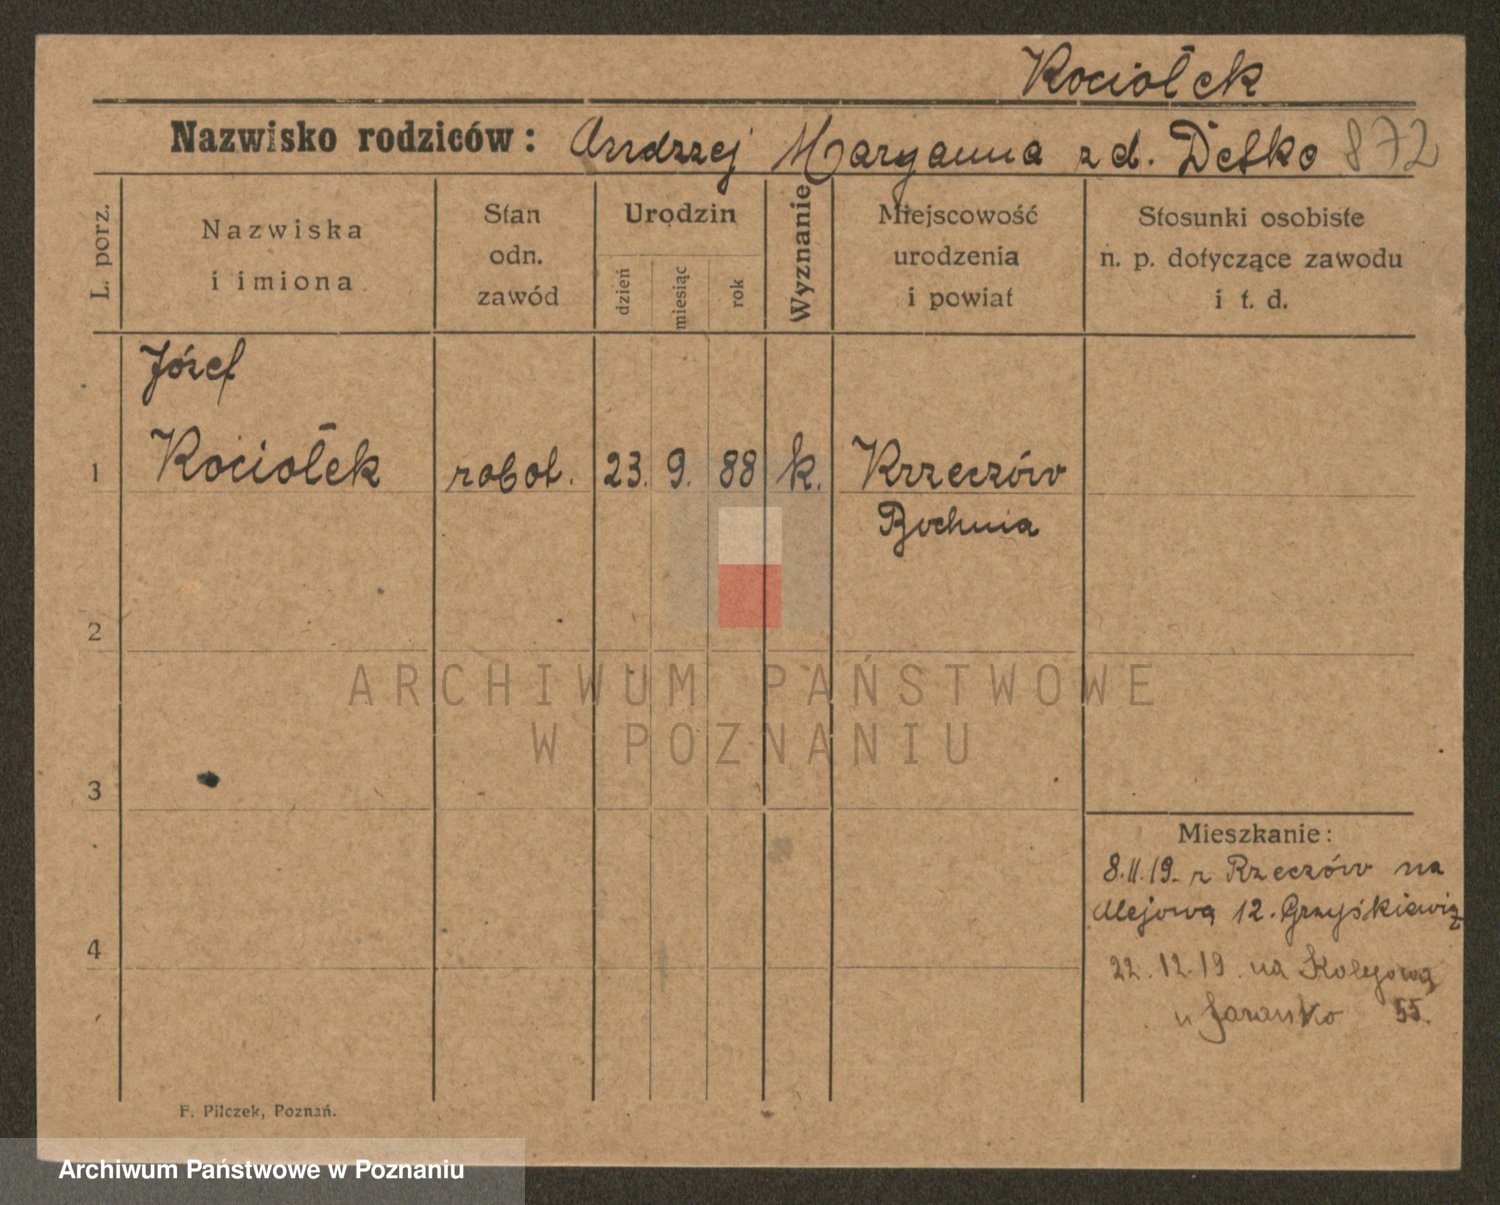 Kociołek
Nazwisko rodziców: Andrzej Maryanna z d. Detko 872
L. porz.
Nazwiska
i imiona
Stan
odn.
zawód
Urodzin
dzień
miesiąc
rok
Wyznanie
Miejscowość
urodzenia
i powiat
Stosunki osobiste
n. p. dotyczące zawodu
i t. d.
Józef
1 Kociołek robot. 23. 9. 88 k. Krzeczów
Bochnia
2
ARCHIWUM PAŃSTWOWE
W POZNANIU
3
Mieszkanie:
8.II.19. z Rzeczów na
Alejową 12.
4
22.12.19. na Kolejową
u 55.
F. Pilczek, Poznań.
Archiwum Państwowe w Poznaniu